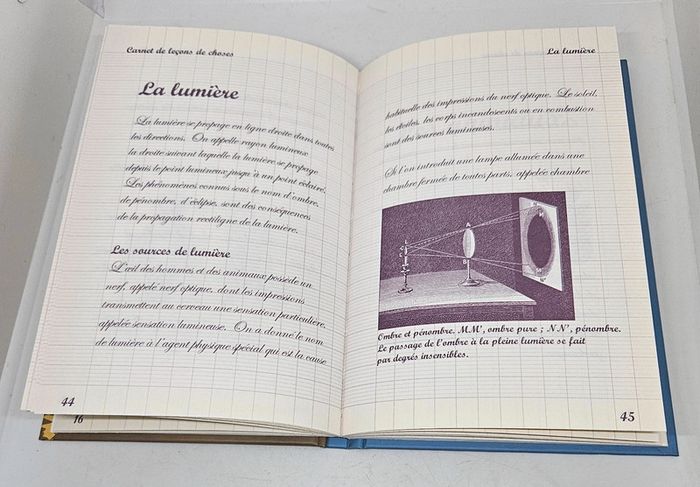 Carnet de leçons de choses
La lumière
La lumière se propage en ligne droite dans toutes
les directions. On appelle rayon lumineux
la droite suivant laquelle la lumière se propage
depuis le point lumineux jusqu'à un point éclairé.
Les phénomènes connus sous le nom d'ombre,
de pénombre, d'éclipse, sont des conséquences
de la propagation rectiligne de la lumière.
Les sources de lumière
L'œil des hommes et des animaux possède un
nerf, appelé nerf optique, dont les impressions
transmettent au cerveau une sensation particulière,
appelée sensation lumineuse. On a donné le nom
de lumière à l'agent physique spécial qui est la cause
44
16
La lumière
habituelle des impressions du nerf optique. Le soleil,
les étoiles, les corps incandescents ou en combustion
sont des sources lumineuses.
Si l'on introduit une lampe allumée dans une
chambre fermée de toutes parts, appelée chambre
Ombre et pénombre. MM', ombre pure ; NN', pénombre.
Le passage de l'ombre à la pleine lumière se fait
par degrés insensibles.
45